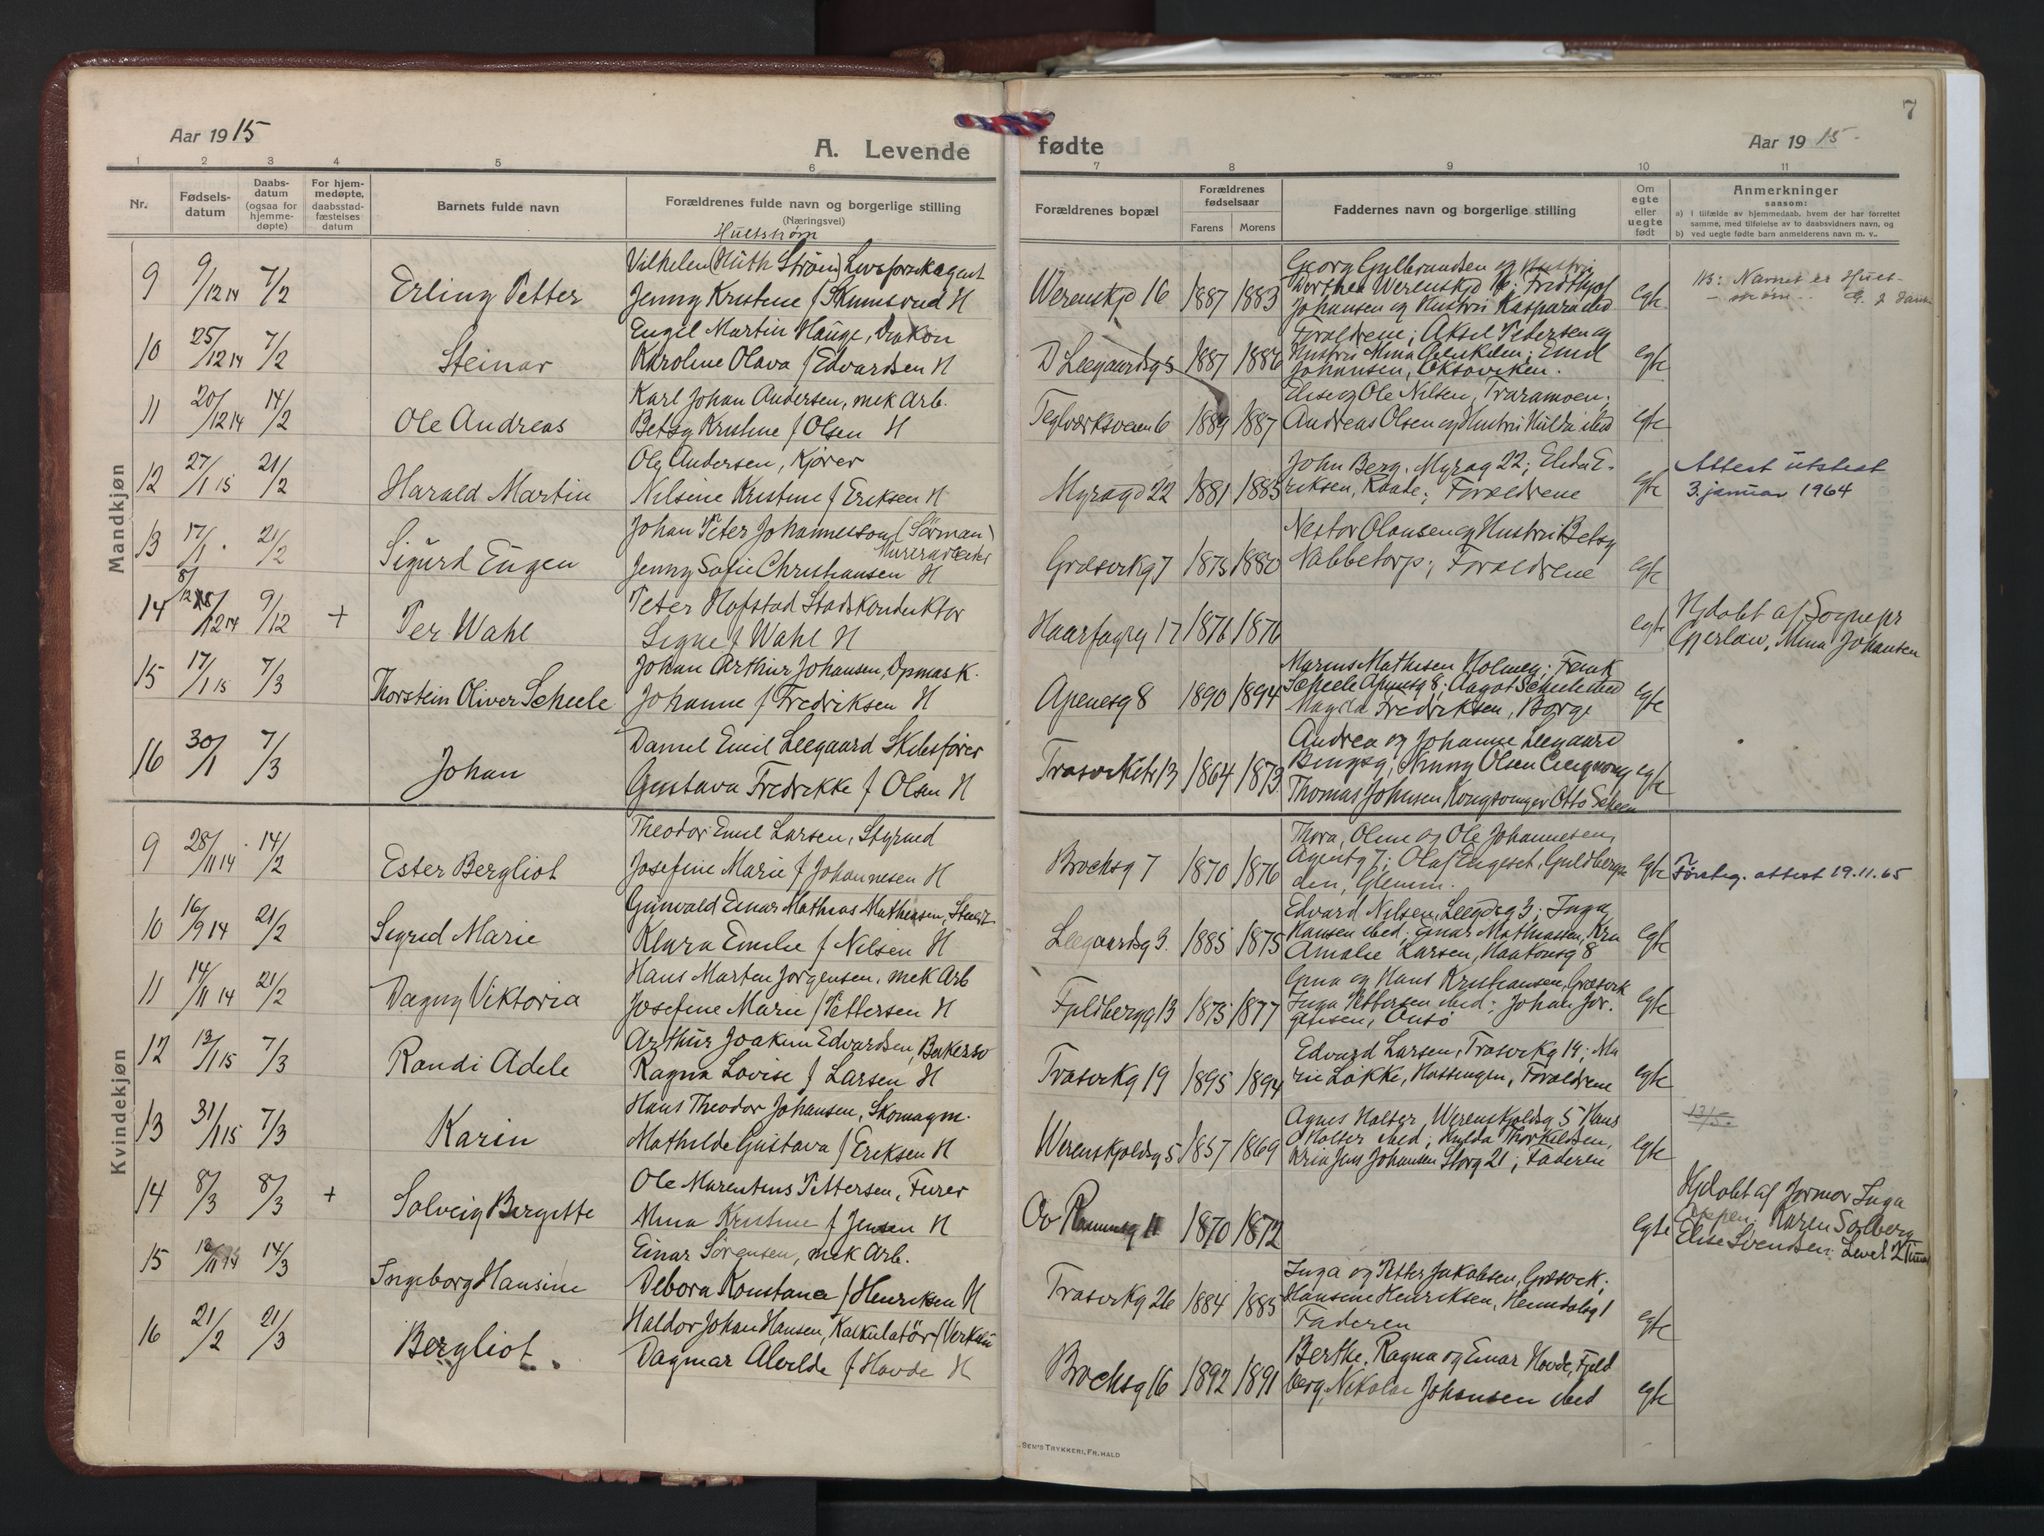 Aar 1915
A. Levende
1 2 3 4 5 6
Nr.
Fødsels-
datum
Daabs-
datum
(ogsaa for
hjemme-
døpte)
For hjem-
medøpte,
daabsstad-
fæstelses
datum
Barnets fulde navn
Forældrenes fulde navn og borgerlige stilling
(Næringsvei)
Mandkjøn
Hultstrøm
9 9/12 14 7/2 Erling Petter Vilhelm (Hùth Strøm) Livsforsikagent
Jenny Kristine f Skumsrud H
10 25/12 14 7/2 Steinar Engel Martin Hauge, Diakon
Karoline Olava f Edvardsen H
11 20/12 14 14/2 Ole Andreas Karl Johan Andersen, mek Arb.
Betsy Kristine f Olsen H
12 27/1 15 21/2 Harald Martin Ole Andersen, Kjører
Nilsine Kristine f Eriksen H
13 17/1 21/2 Sigurd Eugen Johan Peter Johannesson (Sörman)
Murerarbeider
Jenny Sofie Christiansen H
14 8/12 14 9/12 + Per Wahl Peter Hofstad Stadskonduktør
Signe f Wahl H
15 17/1 15 7/3 Thorstein Oliver Scheele Johan Arthur Johansen, Opmask.
Johanne f Fredriksen H
16 30/1 7/3 Johan Daniel Emil Leegaard Skibsfører
Gustava Fredrikke f Olsen H
Kvindekjøn
9 28/11 14 14/2 Ester Bergliot Theodor Emil Larsen, Styrmd
Josefine Marie f Johannesen H
10 16/9 14 21/2 Sigrid Marie Gunvald Einar Mathias Mathiesen,
Klara Emilie f Nilsen H
11 14/11 14 21/2 Dagny Viktoria Hans Marten Jørgensen, mek Arb
Josefine Marie f Pettersen H
12 13/1 15 7/3 Randi Adele Arthur Joakim Edvardsen, Bakersv
Ragna Lovise f Larsen H
13 31/1 15 7/3 Karin Hans Theodor Johansen, Skomagm.
Mathilde Gustava f Eriksen H
14 8/3 8/3 + Solveig Bergitte Ole Marentius Pettersen, Furer
Alma Kristine f Jensen H
15 14/3 Ingeborg Hansine Einar Sørensen, mek Arb.
Debora Konstanse f Henriksen H
16 21/2 21/3 Bergliot. Haldor Johan Hansen, Kalkulatör
Dagmar Alvilde f Hovde H
7
fødte
Aar 1915
7 8 9 10 11
Forældrenes bopæl
Forældrenes
fødselsaar
Farens Morens
Faddernes navn og borgerlige stilling
Om
egte
eller
uegte
født
Anmerkninger
saasom:
a) I tilfælde av hjemmedaab, hvem der har forrettet
samme, med tilføielse av to daabsvidners navn, og
b) ved uegte fødte barn anmelderens navn m. v.
Georg Gulbrandsen og Hustru
Werenskjd 16 1887 1883 Dorthea Werenskjd 16; Fridthjof egte NB: Navnet er Hult-
Johansen og Hustru Kaspara ibid strøm.
Forældrene; Aksel Pedersen og
D Leegaardsg 5 1887 1886 Hustru Alma Ørekilen; Emil egte
Johansen, Oksviken.
Elise og Ole Nilsen, Traramoen;
Teglværksveien 6 1889 1887 Andreas Olsen og Hustru Hulda ibid egte
John Berg. Myrag 22; Elida E- Attest utstedt
Myragd 22 1881 1885 riksen, Raade; Forældrene egte 3. januar 1964
Nestor Olausen og Hustru Betsy
Græsvikg 7 1875 1880 Nabbetorp; Forældrene egte
Haarfagrg 17 1876 1876 egte Hjdøbt af Sognepr
Gjerløw, Alma Johansen
Marius Mathisen Holmeg; Frank
Apenesg 8 1890 1894 Scheele Apenesg 8; Aagot Scheele ibid egte
Magda Fredriksen, Borge
Andrea og Johanne Leegaard
Trosvikstr 13 1864 1873 Bingsg, Ninny Olsen egte
Thomas Johnsen Kongsvinger Otto Scheen
Thora, Oline og Ole Johannesen
Brochsg 7 1870 1876 Agentg 7; Olaf Engeset, Guldbergs egte Førsteg. attest 19.11.65
den, Glemm.
Edvard Nilsen, Leegdsg 3; Inga
Leegaardsg 3. 1885 1875 Hansen ibid. Einar Mathiassen, Kru egte
Amalie Larsen, Haakonsg 8
Gina og Hans Kristiansen, Græsvik
Fjeldbergg 13 1875 1877 Inga Pettersen ibid; Johan Jør- egte
gensen, Onsö
Edvard Larsen, Trosvikg 19; Ma
Trosvikg 19 1895 1894 rie Løkke, Hassingen, Forældrene egte
Agnes Holter, Werenskjoldsg 5 Hans
Werenskjoldsg 5 1857 1869 Holter ibid; Hulda Thorkildsen, egte
Jens Johansen Storg 21; Faderen
1870 1872 egte Hjdøbt af Jormor Inga
Karen Solberg
Elise Svendsen; Levet 2 Timer
Inga og Petter Jakobsen, Græsvik;
Trosvikg 26 1884 1885 Hansine Henriksen, Heimdalsg 1 egte
Faderen
Berthe, Ragna og Einar Hovde, Fjeld
Brochsg 16 1892 1891 berg, Nikolai Johansen ibid egte
SEN'S TRYKKERI, FR.HALD